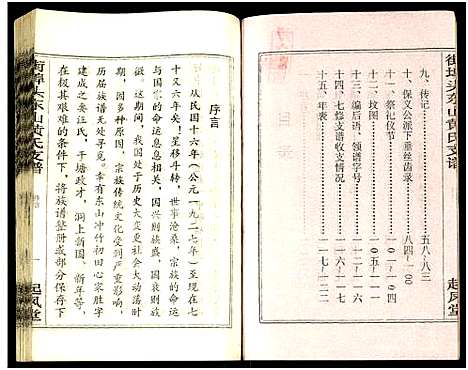 街埠头东山黄氏支谱
九、传记 五八~八三
十、保义公派下垂丝齿录 八四~一〇〇
十一、祭祀仪节 一〇一~一〇四
十二、坟图 一〇五~一一〇
十三、编后语、领谱字号 一一一~一一六
十四、七修支谱收支情况 一一七
十五、 一一七~一二二
起凤堂
序言
从民国十六年（公元一九二七年）至现在七
十又六年矣！星移斗转，世事沧桑，宗族的命运
与国家的命运息息相关，国兴则族盛，国衰则族
微。这期间，我国处于历史大变更社会大动荡时
期，因多种原因，宗族传统文化受到严重影响，
历届族谱无处寻见。幸有东山冲竹初田心家胜字
建成之妻汪氏，干塘政才，洞上新国、新年等，
在极其艰难的条件下，将族谱整册或部分保存下
街埠头东山黄氏支谱
一
起凤堂